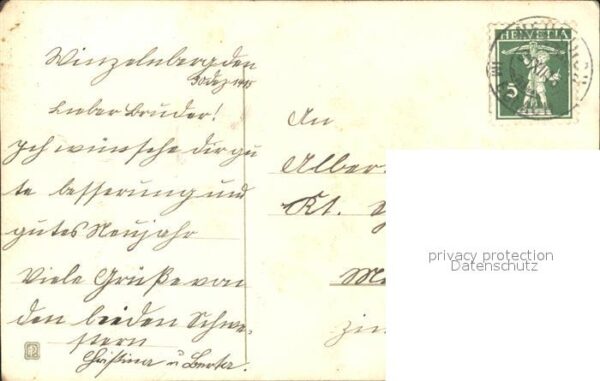 Winzelnberg den
30 Dez 1915
Lieber Bruder!
Ich wünsche dir gu
te besserung und
gutes Neujahr
Viele Grüße von
den beiden Schwe-
stern
Christina u Berta.
An
Alber
Kt.
zin
HELVETIA
5
privacy protection
Datenschutz